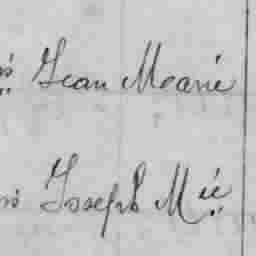 Jean Marie
Joseph Mie